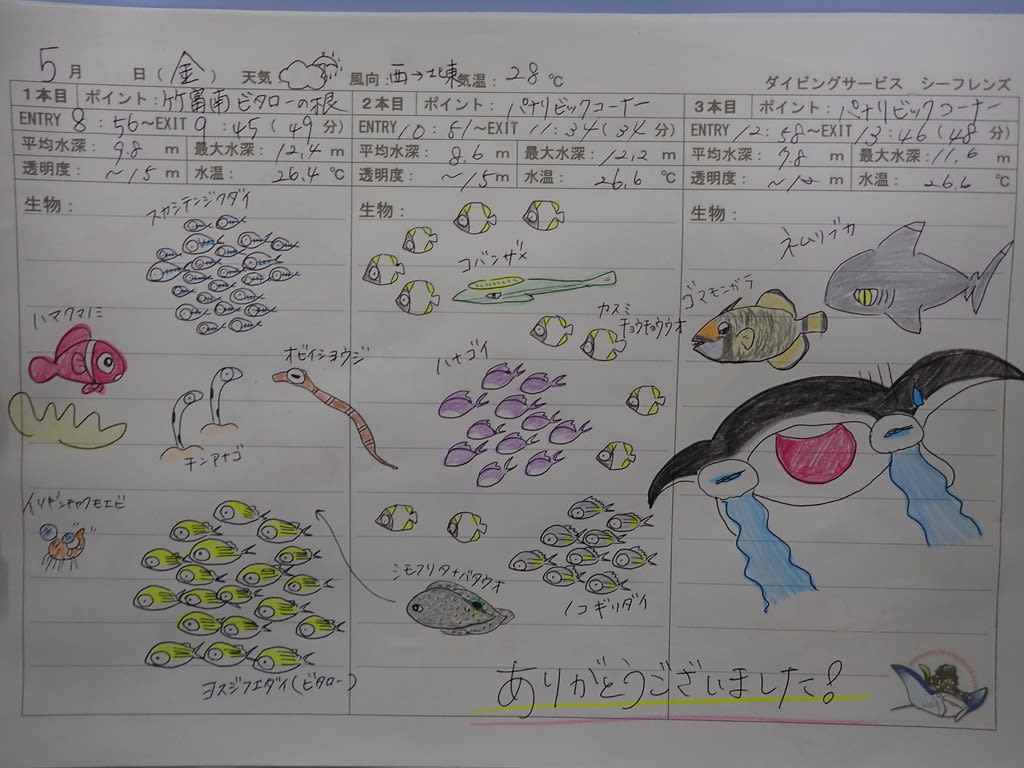 5月 日(金) 天気 風向:西→北東 気温:28℃
ダイビングサービス シーフレンズ
1本目 ポイント:竹富南ビタローの根
ENTRY 8:56~EXIT 9:45(49分)
平均水深:9.8 m 最大水深:12.4 m
透明度:~15 m 水温:26.4℃
生物:
スカシテンジクダイ
ハマクマノミ
オビイシヨウジ
チンアナゴ
イソギンチャクモエビ
ヨスジフエダイ(ビタロー)
2本目 ポイント:パナリビックコーナー
ENTRY 10:51~EXIT 11:34(34分)
平均水深:8.6 m 最大水深:12.2 m
透明度:~15 m 水温:26.6℃
生物:
コバンザメ
カスミ
チョウチョウウオ
ハナゴイ
シモフリタナバタウオ
ノコギリダイ
3本目 ポイント:パナリビックコーナー
ENTRY 12:58~EXIT 13:46(48分)
平均水深:9.8 m 最大水深:11.6 m
透明度:~ m 水温:26.6℃
生物:
ネムリブカ
ゴマモンガラ
ありがとうございました!